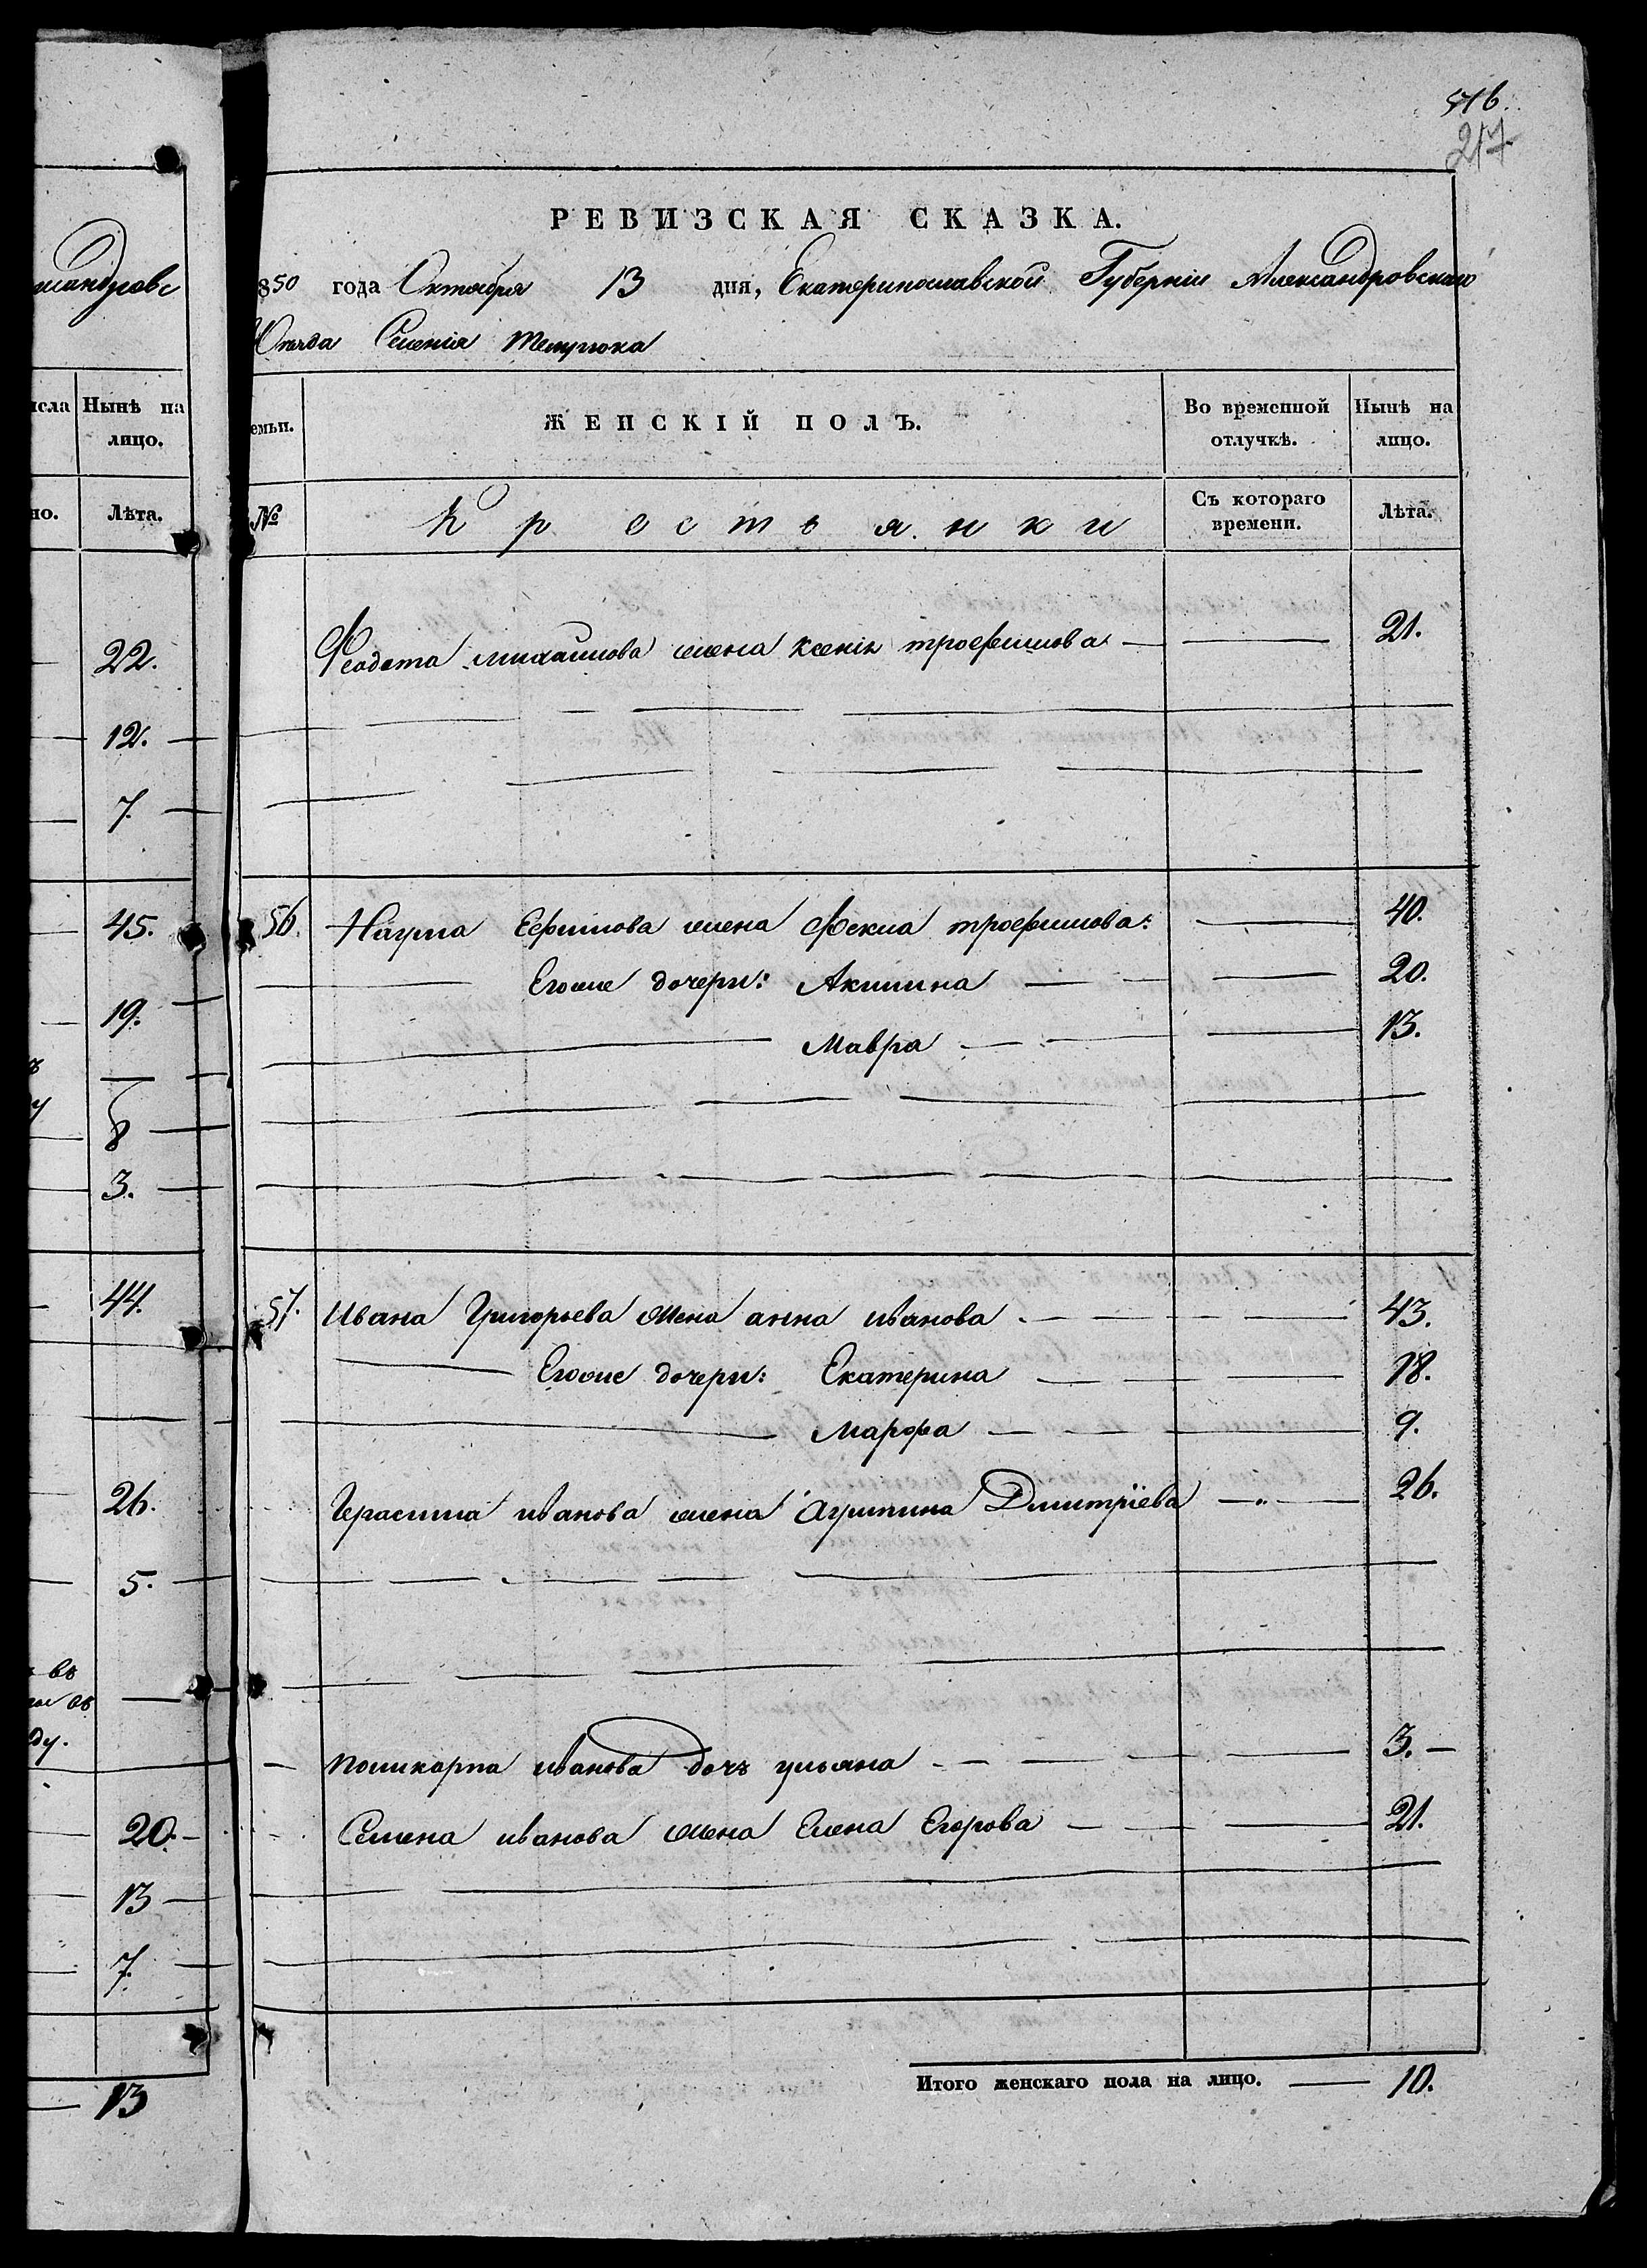 516.
217
РЕВИЗСКАЯ СКАЗКА.
850 года Октября 13 дня, Екатеринославской Губернiи Александровскаго
Уѣзда Селенiя
емьи.
ЖЕНСКIЙ ПОЛЪ.
Во временной отлучкѣ.
Нынѣ на лицо.
№
Крестьянки
Съ котораго времени.
Лѣта.
Феодота михаилова жена ксенiя трофимова 21.
56. Наума Ефимова жена Фекла трофимова: 40.
Егоже дочери: Акилина 20.
Мавра 13.
57. Ивана Григорьева жена анна иванова 43.
Егоже дочери: Екатерина 18.
Марфа 9.
Герасима иванова жена Агрипина Дмитрiева 26.
поликарпа иванова дочь ульяна 3.
Семена иванова жена Елена Егорова 21.
Итого женскаго пола на лицо. 10.
Нынѣ на
лицо.
Лѣта.
22.
12.
7.
45.
19.
8
3.
44.
26.
5.
въ
ду.
20.
13
7.
13